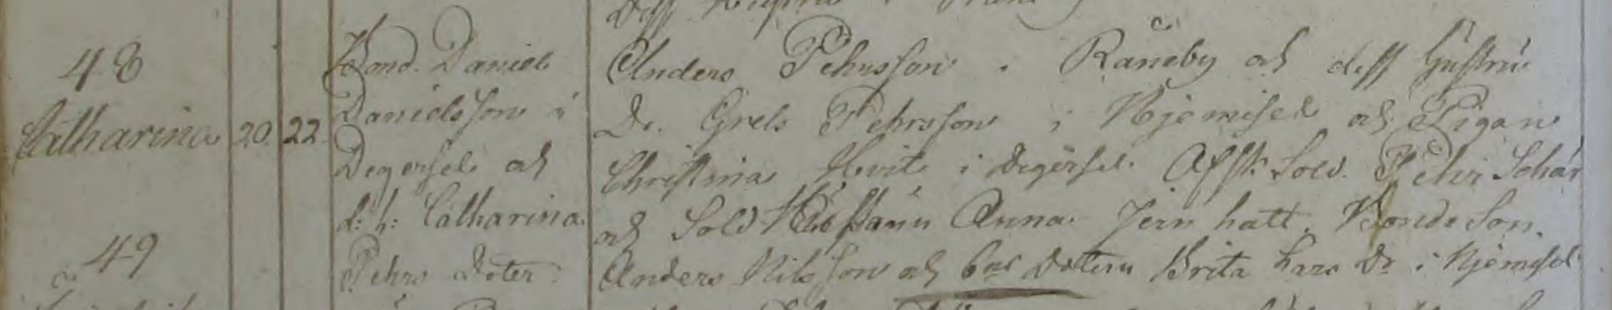 48
Catharina 20. 22.
Bond. Daniel
Danielsson i
Degersel och
d: h: Catharina
Pehrs Doter
Anders Pehrsson i Råneby och dess hustru
Dr. Grels Pehrsson i Niemisel och Pigan
Christina Hvit i Degersel. Afsk. Sold. Pehr Schär
och Sold Anna Jernhatt. Bonde Son.
Anders Nilsson och dottern Brita Lars Dr i Niemisel
49